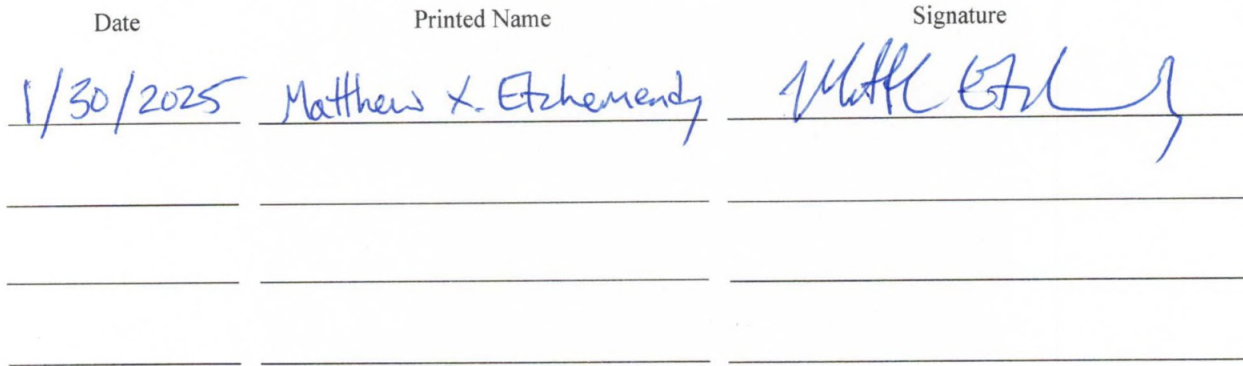 Date Printed Name Signature
1/30/2025 Matthew X. Etchemendy